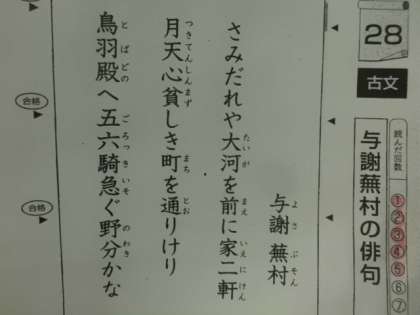 28
古文
与謝蕪村の俳句
読んだ回数
①②③④⑤⑥⑦
与謝蕪村
よさぶそん
さみだれや大河を前に家二軒
たいが まえ いえにけん
月天心貧しき町を通りけり
つきてんしんまず まち とお
鳥羽殿へ五六騎急ぐ野分かな
とばどの ごろっきいそ のわき
合格
合格